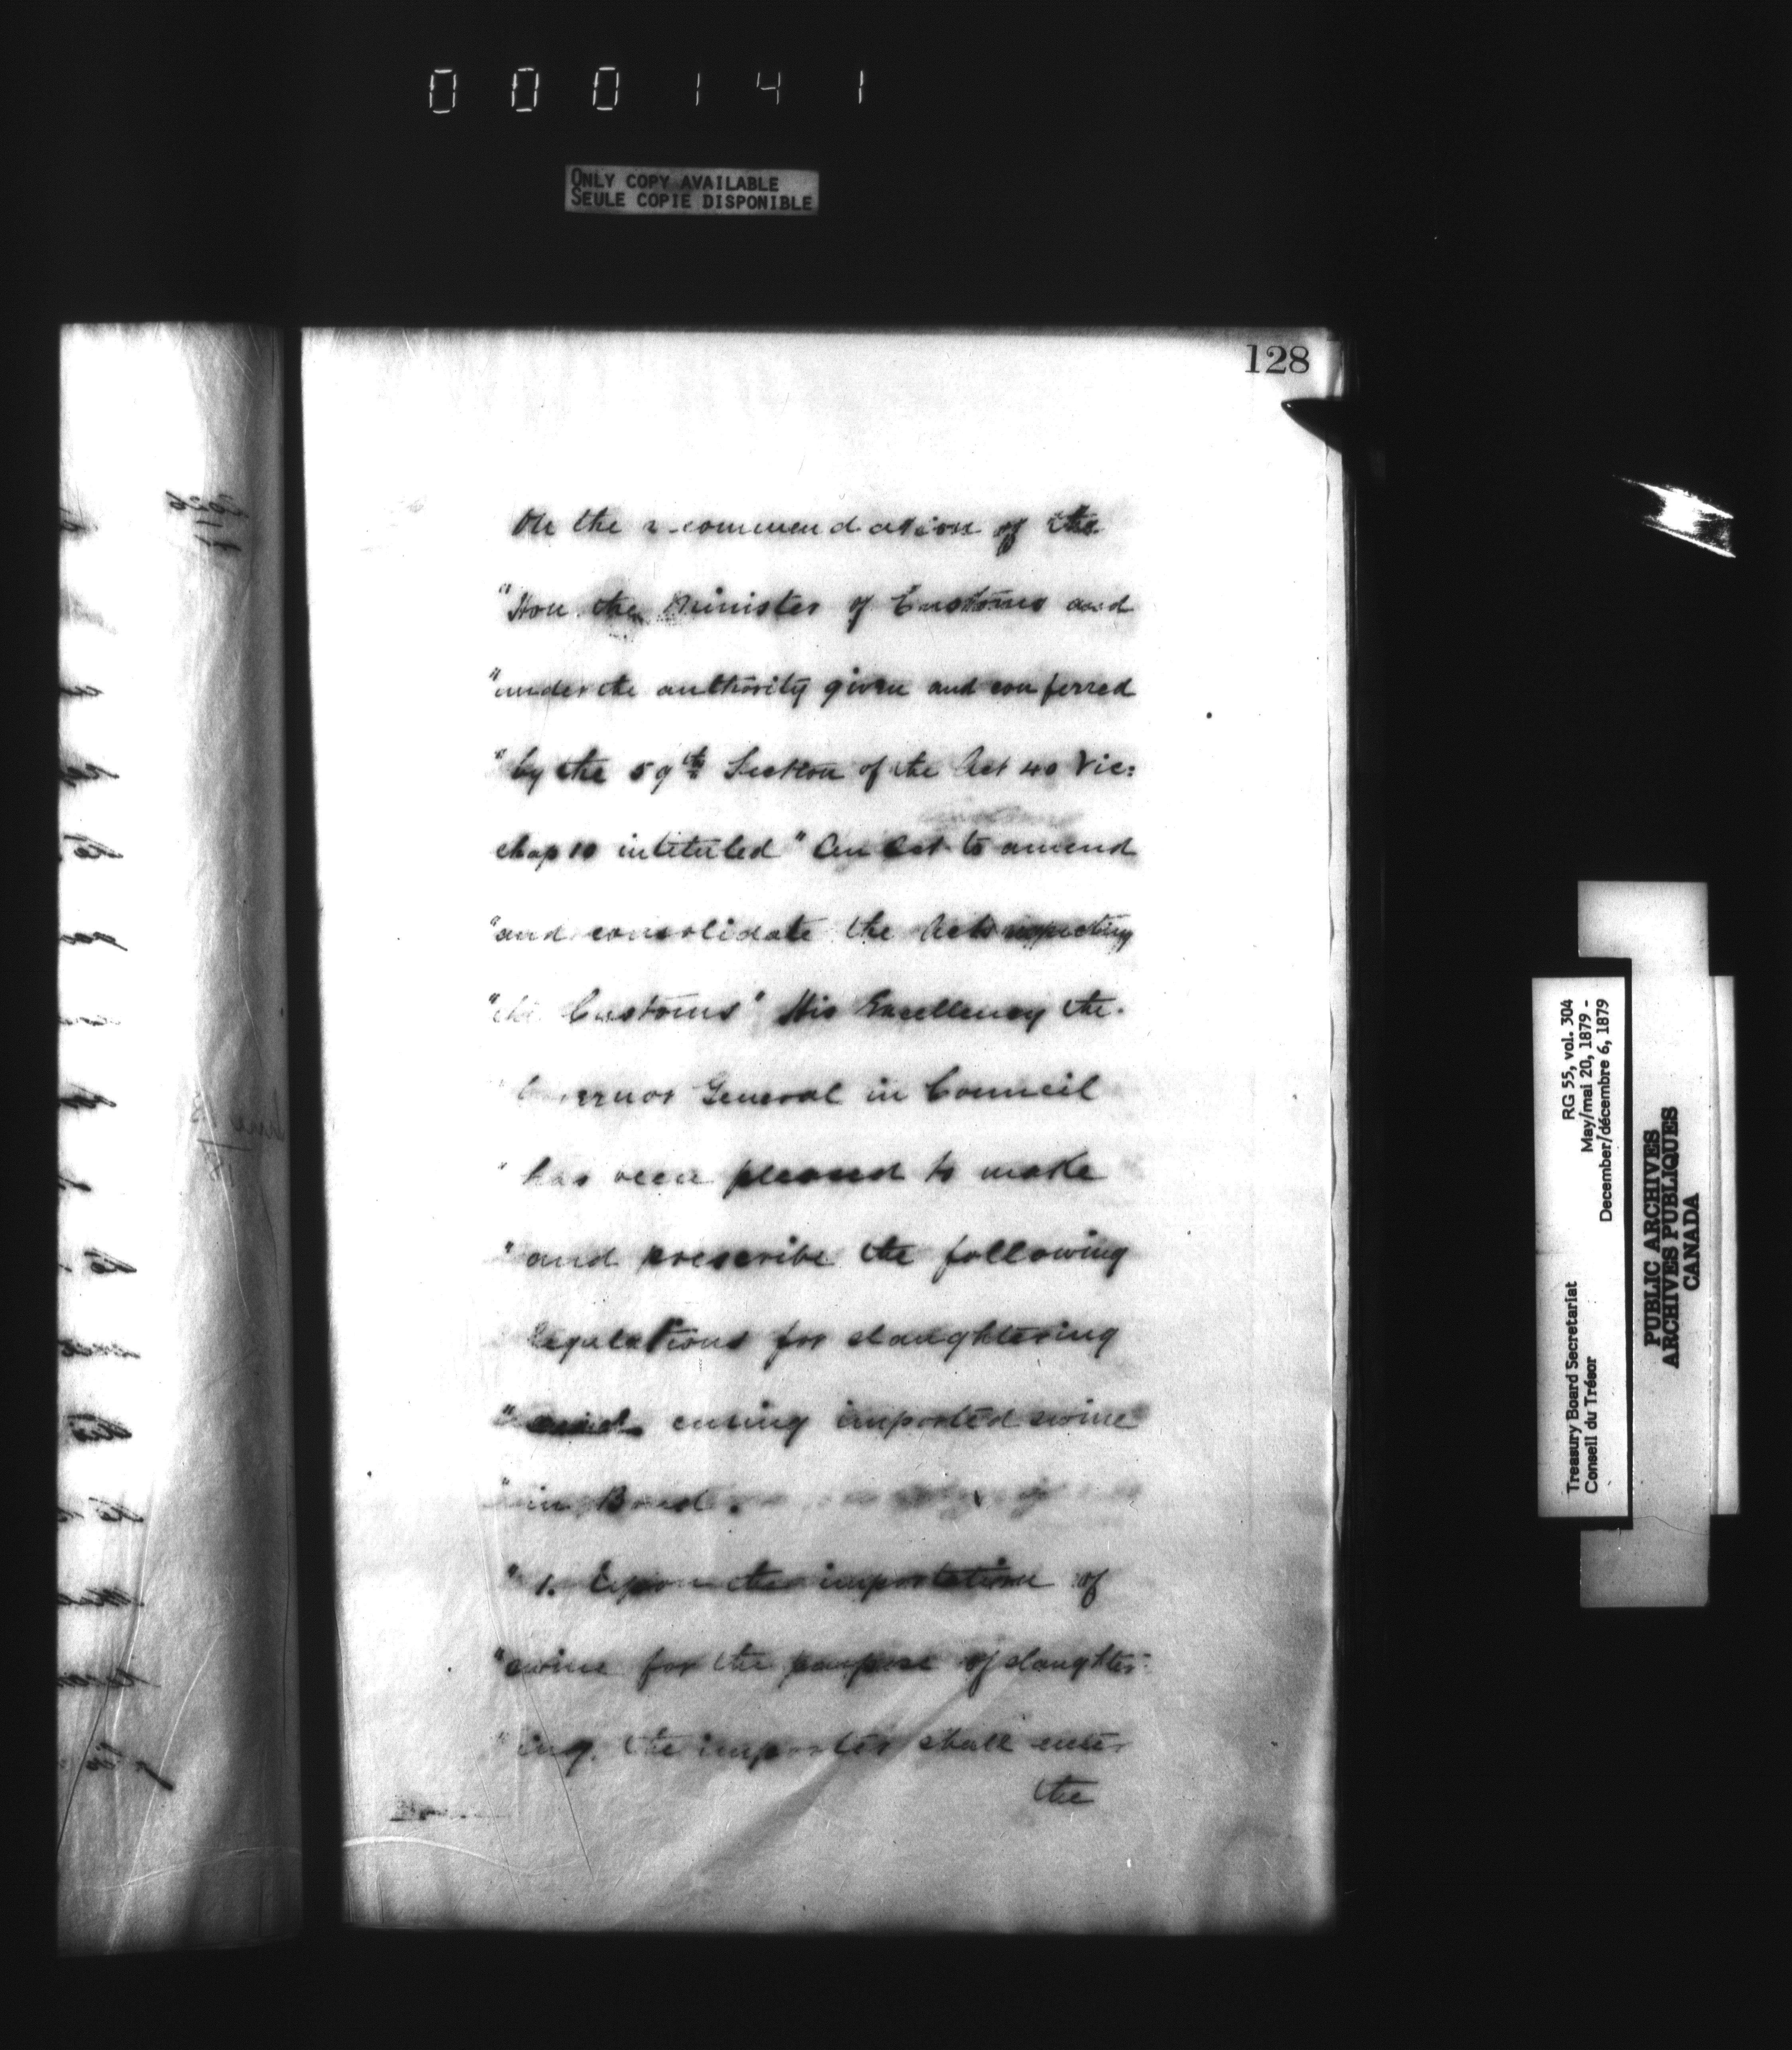 000141
ONLY COPY AVAILABLE
SEULE COPIE DISPONIBLE
128
On the recommendation of the
"Hon. the Minister of Customs and
"under the authority given and conferred
"by the 59th Section of the Act 40 Vic:
chap 10 intituled "An Act to amend
"and consolidate the Acts respecting
"the Customs" His Excellency the
"Governor General in Council
"has been pleased to make
"and prescribe the following
Regulations for slaughtering
"and curing imported swine
"in Bond.
"1. Upon the importation of
"swine for the purpose of slaughter-
"ing, the importer shall enter
the
Treasury Board Secretariat
Conseil du Trésor
RG 55, vol. 304
May/mai 20, 1879 -
December/décembre 6, 1879
PUBLIC ARCHIVES
ARCHIVES PUBLIQUES
CANADA